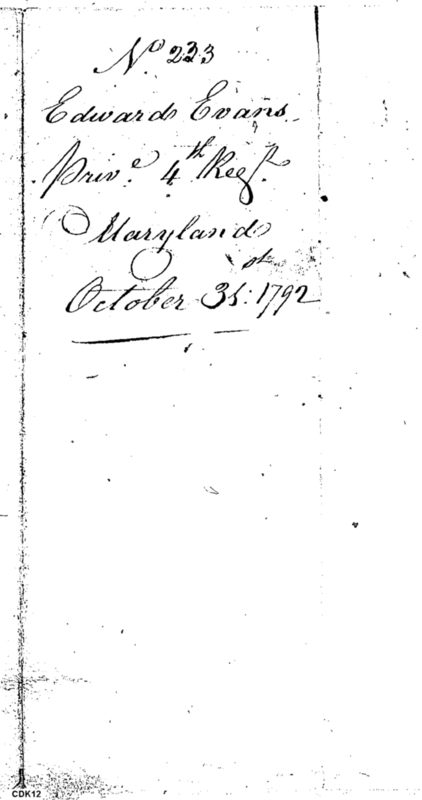 No. 233
Edward Evans
Prive. 4th Regt.
Maryland
October 31st: 1792
CDK12